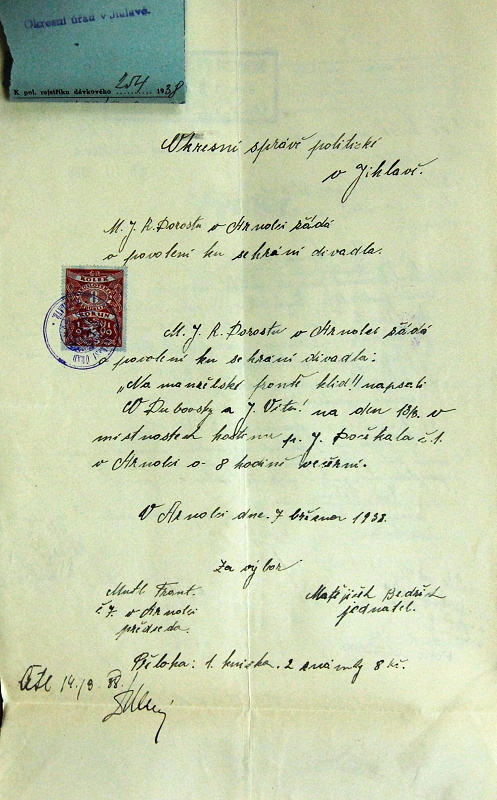 Okresní úřad v Jihlavě.
K pol. rejstříku dávkového 204 1938
Okresní správě politické
v Jihlavě.
M. J. R. Dorostu v Arnolci žádá
o povolení ku sehrání divadla.
KOLEK
8
KORUN
M. J. R. Dorostu v Arnolci žádá
o povolení ku sehrání divadla:
„Na manželské frontě klid!! napsali
W Dubovský a J. Vita! na den 13/3. v
místnostech hostince p. J. Dočkala č. 1.
v Arnolci o 8 hodině večerní.
V Arnolci dne 7 března 1938.
Za výbor
Mutl Frant.
č. 7. v Arnolci
předseda.
Matějíček Bedřich
jednatel.
Příloha: 1. knížka. 2 známky 8 kč.
14./3. 38.